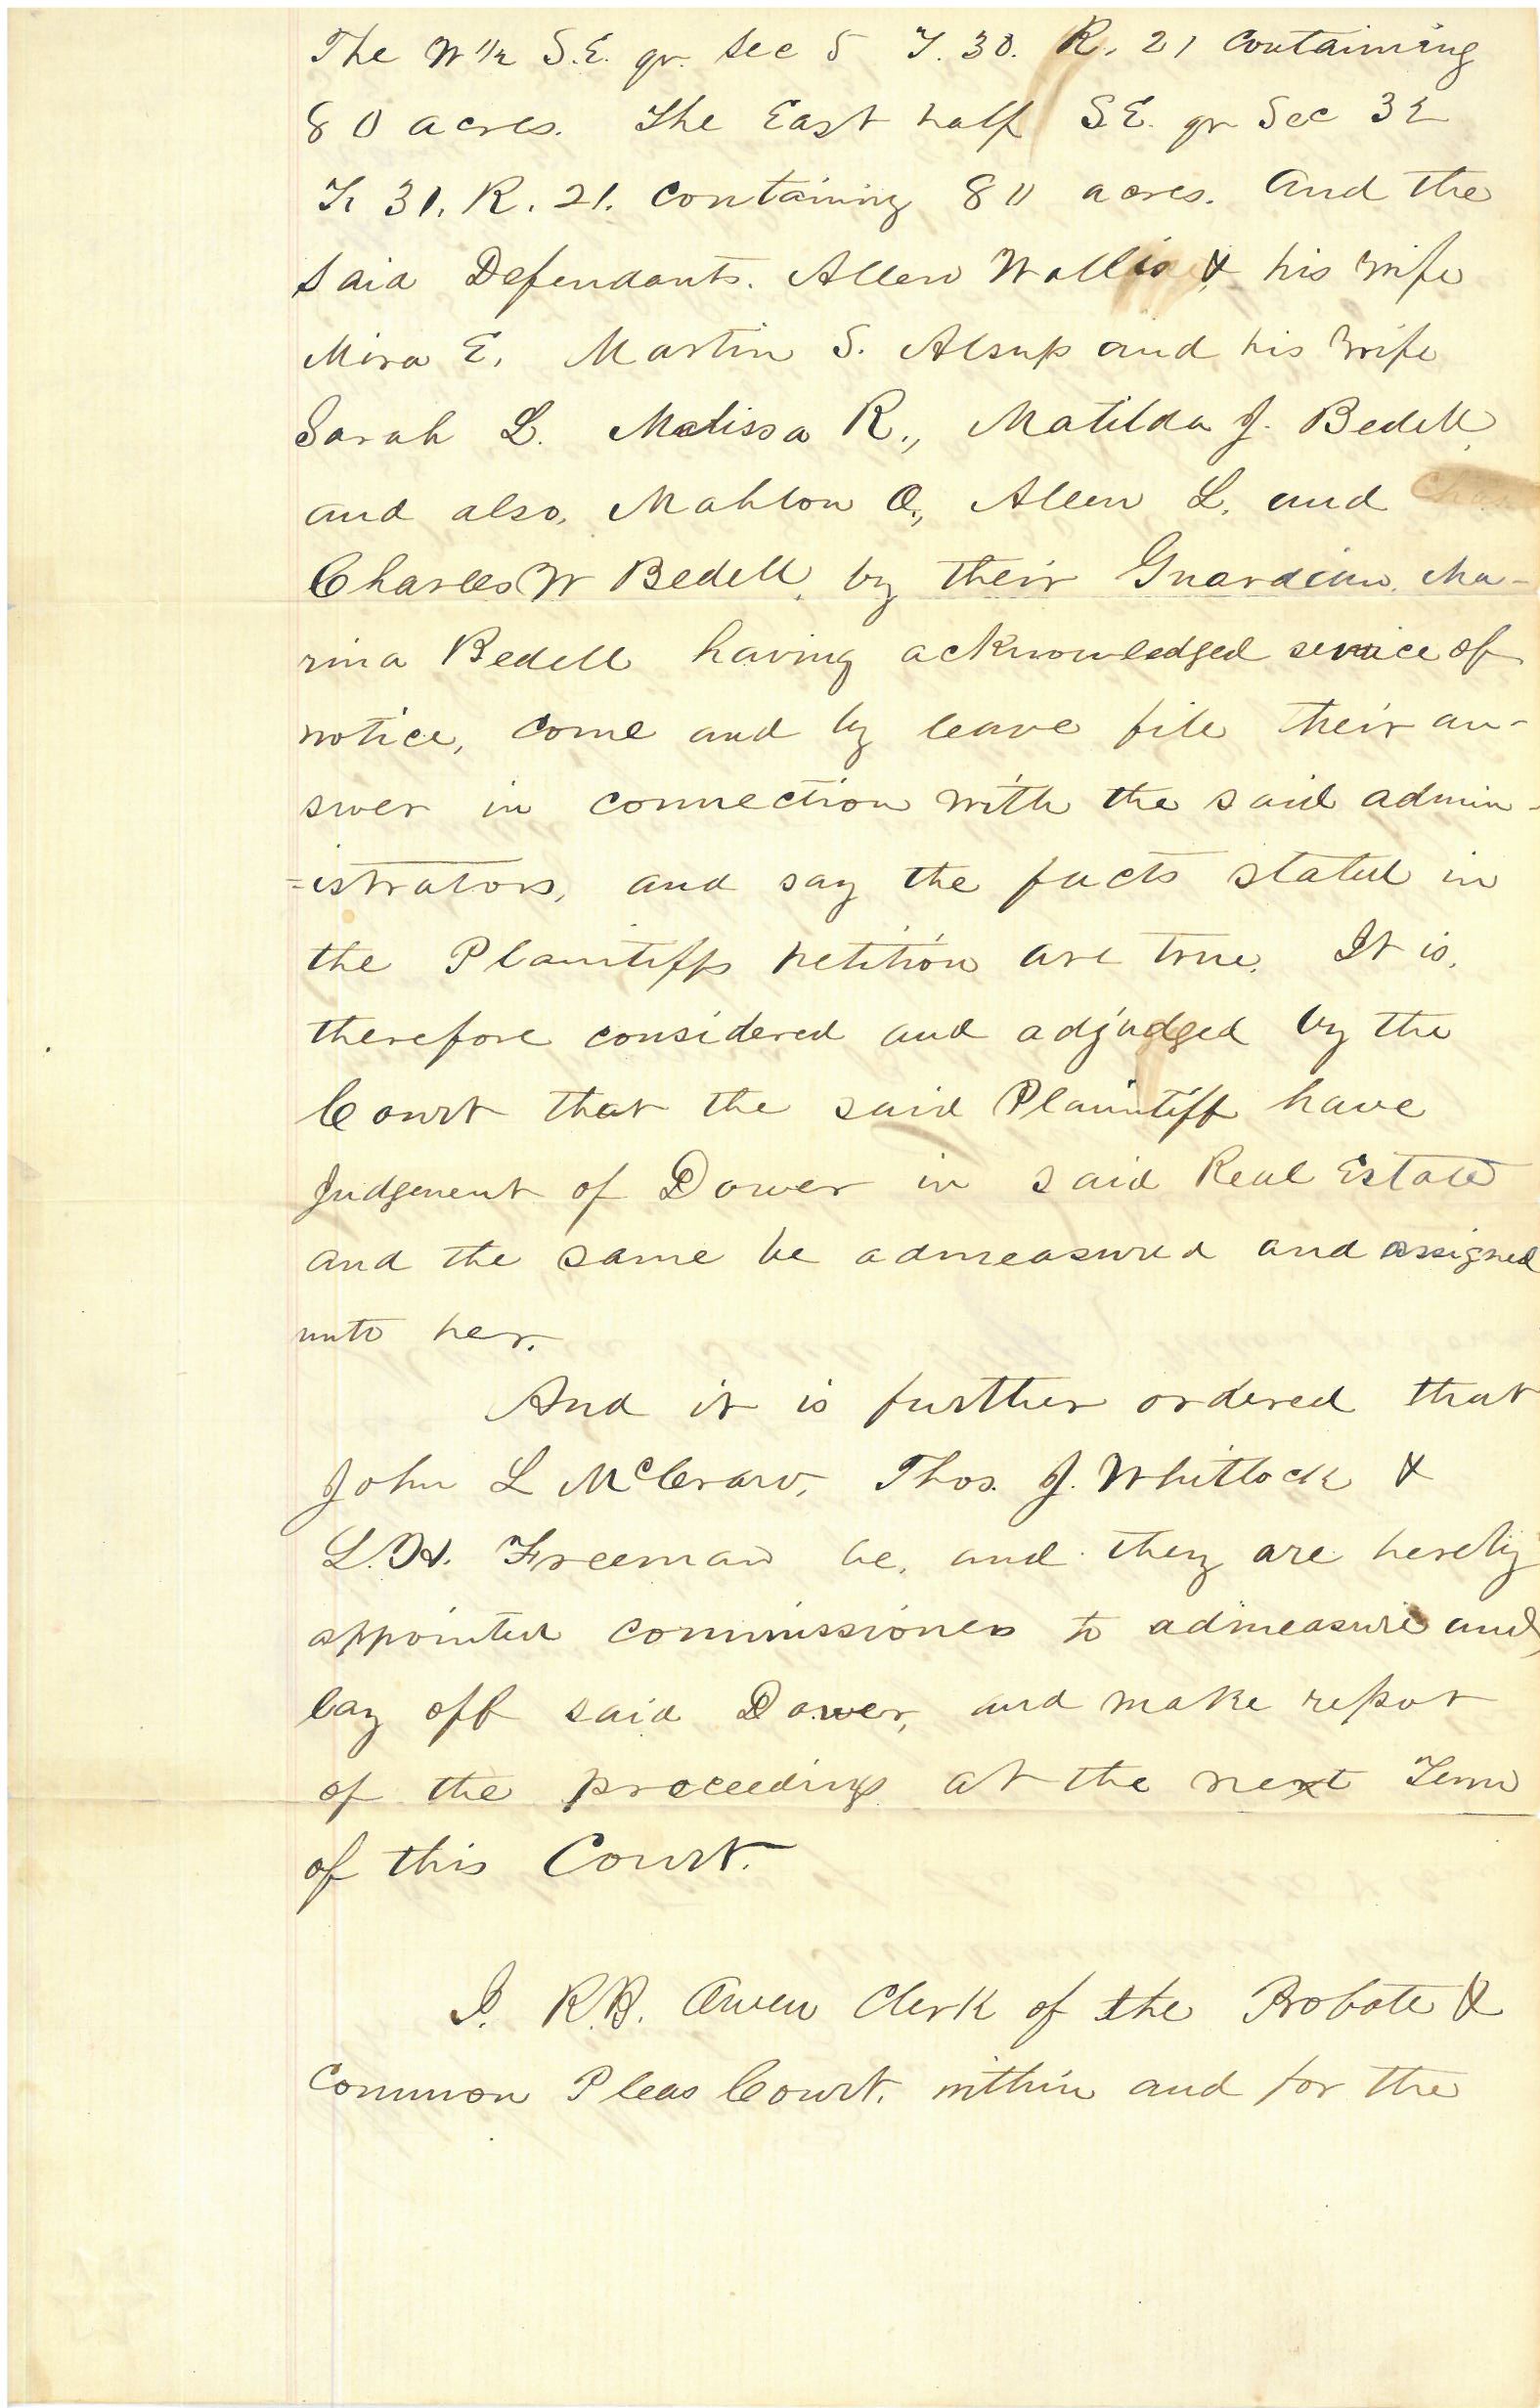 The W 1/2 S.E. qr. Sec 5 T. 30. R. 21 containing
80 acres. The East half S.E. qr Sec 32
T. 31. R. 21. containing 80 acres. And the
said Defendants. Allen Wallis & his wife
Mira E. Martin S. Alsup and his wife
Sarah L. Malissa R., Matilda J. Bedell,
and also, Mahlon O., Allen L. and
Charles W Bedell, by their Guardian, Ma-
rina Bedell having acknowledged service of
notice, come and by leave file their an-
swer in connection with the said admin-
=istrators, and say the facts stated in
the Plaintiffs petition are true. It is,
therefore considered and adjudged by the
Court that the said Plaintiff have
Judgement of Dower in said Real Estate
and the same be admeasured and assigned
unto her.
And it is further ordered that
John L McCraw, Thos. J. Whitlock &
L.H. Freeman be, and they are hereby
appointed commissioners to admeasure and
lay off said Dower, and make report
of the proceedings at the next Term
of this Court.
I. R.B. Owen Clerk of the Probate &
Common Pleas Court, within and for the